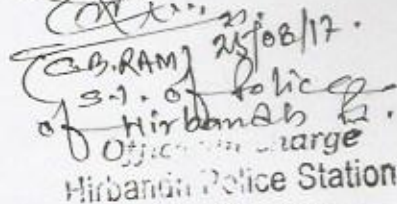 25/08/17.
(G.B.RAM)
S.I. of Police
of Hirbandh P.S.
Officer in charge
Hirbandh Police Station